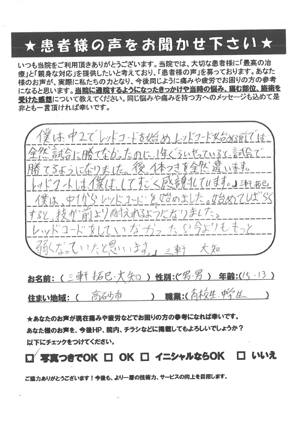 ★患者様の声をお聞かせ下さい★
いつも当院をご利用頂きありがとうございます。当院では、大切な患者様に「最高の治
療」と「親身な対応」を提供したいと考えており、「患者様の声」を募っております。あなた
様のお声が、実際に私たちの力となり、今後同じように痛みや疲労でお困りの方の参考
になると思います。当院に通院するようになったきっかけや当時の悩み、痛む部位、施術を
受けた感想について教えてください。同じ悩みや痛みを持つ方へのメッセージも込めて是
非とも一言頂ければ幸いです。
僕は中2でレッドコードを始め レッドコードを始める前までは
全然試合に勝てなかったのに1年くらいやっていると試合で
勝てるようになりました。後、体つきも全然違います。
レッドコードには僕はしてすごく感謝しています。
僕は、中1からレッドコードを始めました。始めてしばらく
すると、技が前より耐えれるようになりました。
レッドコードをしていなかったら今よりもっと
弱くなっていたと思います。 三軒 大知
お名前:(三軒 拓巳・大知) 性別:(男・男) 年齢:(15・13)
住まい地域:( 高石市 ) 職業:(高校生・中学生)
★あなたのお声が現在痛みや疲労などでお困りの方の参考になれば幸いです。
あなた様のお声を、今後HP、院内、チラシなどに掲載してもよろしいでしょうか?
以下にチェックをつけてください。
□ 写真つきでOK □ OK □ イニシャルならOK □ いいえ
ご協力ありがとうございます！今後も、より一層の技術力、サービスの向上を目指します。